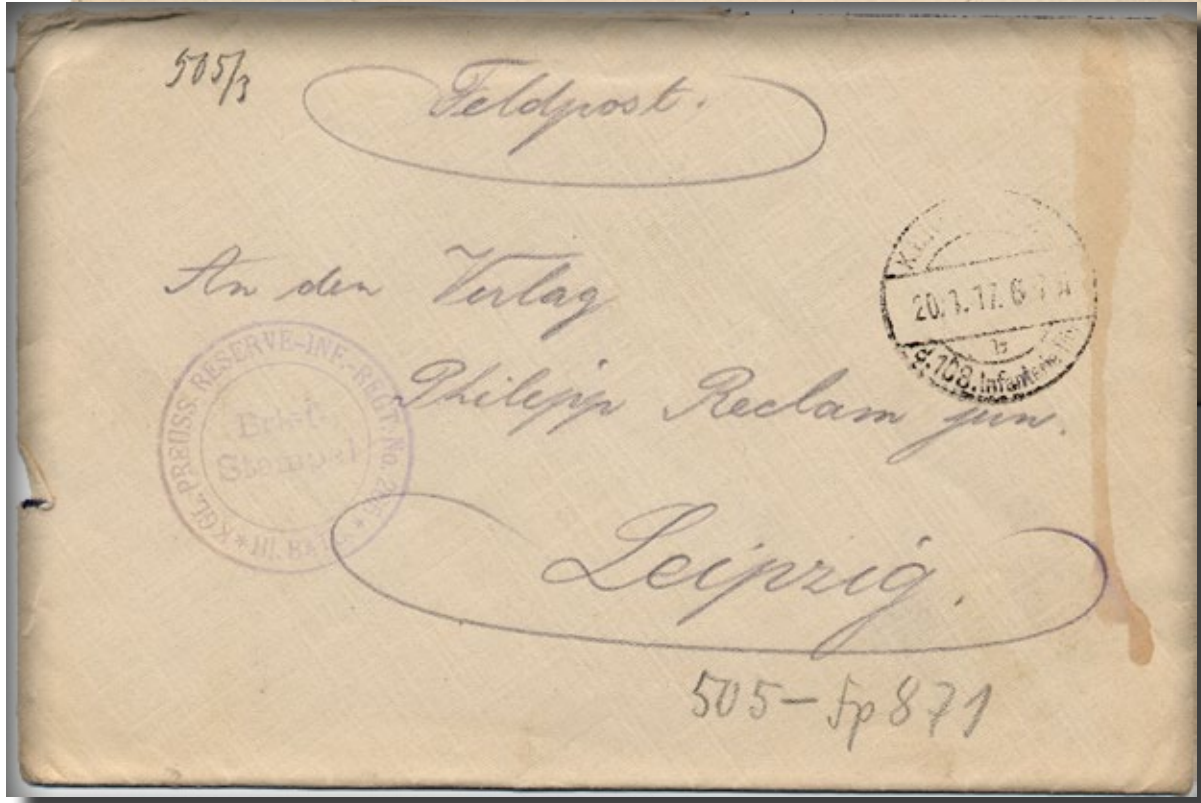 505/3
Feldpost.
An den Verlag
Philipp Reclam jun.
Leipzig.
KGL. PREUSS. RESERVE-INF.-REGT. No.
Brief
Stempel
III.
20.1.17. 6
b
d.108.Infanterie
505-Fp 871